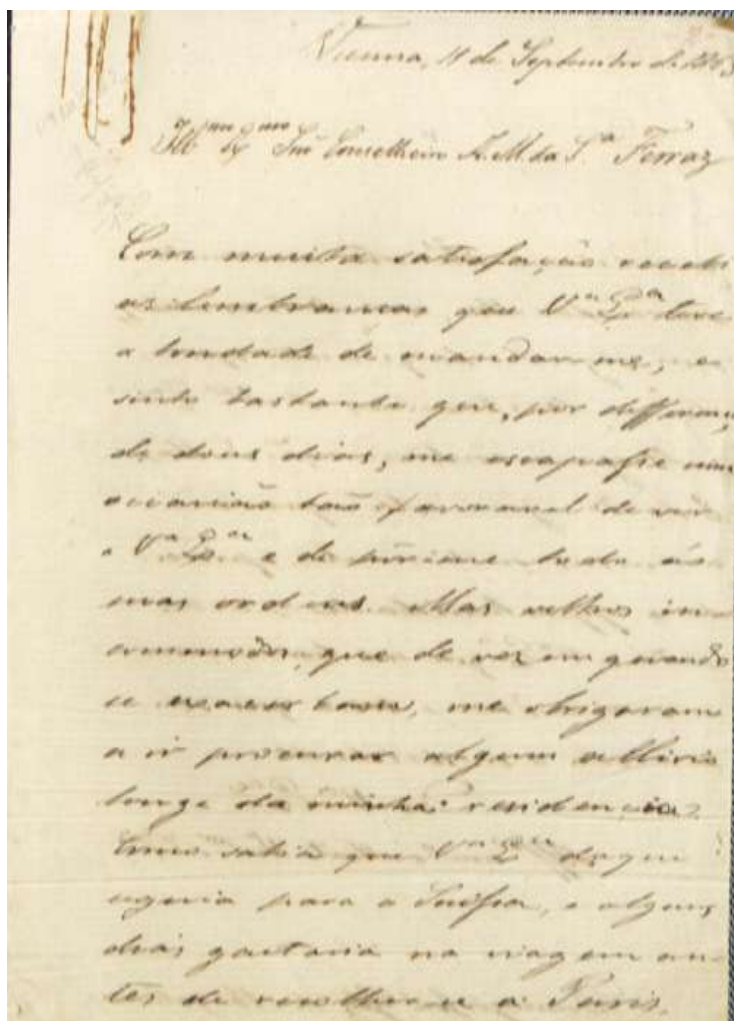 Vienna, 11 de Septembro de 1863
Ill.mo Ex.mo Snr Conselheiro A. M. da S.a Ferraz
Com muita satisfação recebi
as lembranças que V.a Ex.a teve
a bondade de mandar me, e
sinto bastante que, por differença
de dous dias, me escapasse uma
occasião tão favoravel de ver
a V.a Ex.a e de pôr-me todo ás
suas ordens. Mas velhos in-
commodos, que de vez em quando
se exacerbam, me obrigaram
a ir procurar algum allivio
longe da minha residencia.
Como sabia que V.a Ex.a daqui
seguiria para a Suissa, e alguns
dias gastaria na viagem an-
tes de recolher-se a Paris,